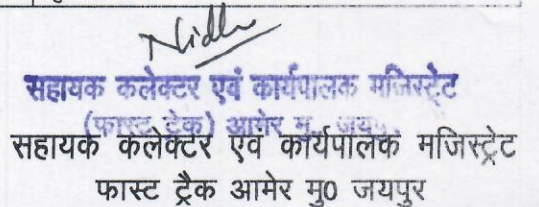 Nidhi
सहायक कलेक्टर एवं कार्यपालक मजिस्ट्रेट
(फास्ट ट्रेक) आमेर मु. जय
सहायक कलेक्टर एवं कार्यपालक मजिस्ट्रेट
फास्ट ट्रैक आमेर मु0 जयपुर